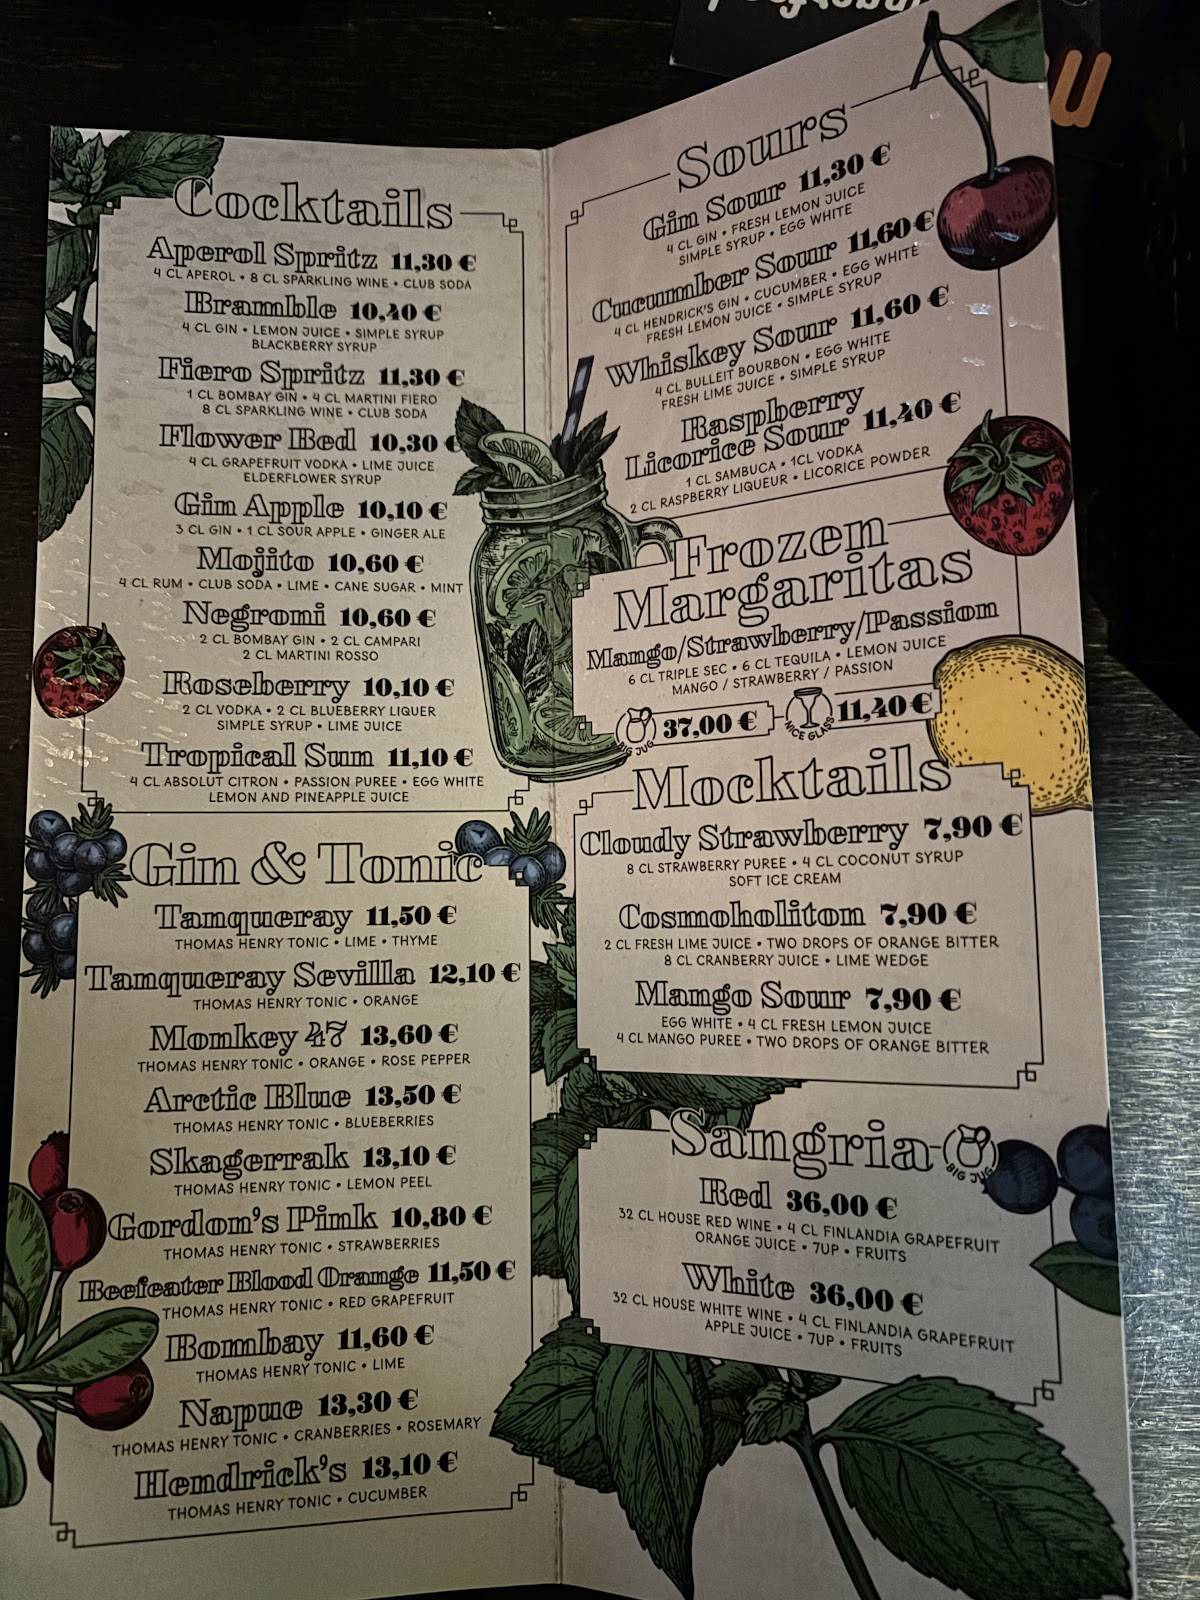 Cocktails
Aperol Spritz 11,30 €
4 CL APEROL • 8 CL SPARKLING WINE • CLUB SODA
Bramble 10,40 €
4 CL GIN • LEMON JUICE • SIMPLE SYRUP
BLACKBERRY SYRUP
Fiero Spritz 11,30 €
1 CL BOMBAY GIN • 4 CL MARTINI FIERO
8 CL SPARKLING WINE • CLUB SODA
Flower Bed 10,30 €
4 CL GRAPEFRUIT VODKA • LIME JUICE
ELDERFLOWER SYRUP
Gin Apple 10,10 €
3 CL GIN • 1 CL SOUR APPLE • GINGER ALE
Mojito 10,60 €
4 CL RUM • CLUB SODA • LIME • CANE SUGAR • MINT
Negroni 10,60 €
2 CL BOMBAY GIN • 2 CL CAMPARI
2 CL MARTINI ROSSO
Roseberry 10,10 €
2 CL VODKA • 2 CL BLUEBERRY LIQUER
SIMPLE SYRUP • LIME JUICE
Tropical Sun 11,10 €
4 CL ABSOLUT CITRON • PASSION PUREE • EGG WHITE
LEMON AND PINEAPPLE JUICE
Gin & Tonic
Tanqueray 11,50 €
THOMAS HENRY TONIC • LIME • THYME
Tanqueray Sevilla 12,10 €
THOMAS HENRY TONIC • ORANGE
Monkey 47 13,60 €
THOMAS HENRY TONIC • ORANGE • ROSE PEPPER
Arctic Blue 13,50 €
THOMAS HENRY TONIC • BLUEBERRIES
Skagerrak 13,10 €
THOMAS HENRY TONIC • LEMON PEEL
Gordon's Pink 10,80 €
THOMAS HENRY TONIC • STRAWBERRIES
Beefeater Blood Orange 11,50 €
THOMAS HENRY TONIC • RED GRAPEFRUIT
Bombay 11,60 €
THOMAS HENRY TONIC • LIME
Napue 13,30 €
THOMAS HENRY TONIC • CRANBERRIES • ROSEMARY
Hendrick's 13,10 €
THOMAS HENRY TONIC • CUCUMBER
Sours
Gin Sour 11,30 €
4 CL GIN • FRESH LEMON JUICE
SIMPLE SYRUP • EGG WHITE
Cucumber Sour 11,60 €
4 CL HENDRICK'S GIN • CUCUMBER • EGG WHITE
FRESH LEMON JUICE • SIMPLE SYRUP
Whiskey Sour 11,60 €
4 CL BULLEIT BOURBON • EGG WHITE
FRESH LIME JUICE • SIMPLE SYRUP
Raspberry
Licorice Sour 11,40 €
1 CL SAMBUCA • 1CL VODKA
2 CL RASPBERRY LIQUEUR • LICORICE POWDER
Frozen
Margaritas
Mango/Strawberry/Passion
6 CL TRIPLE SEC • 6 CL TEQUILA • LEMON JUICE
MANGO / STRAWBERRY / PASSION
BIG JUG 37,00 € NICE GLASS 11,40 €
Mocktails
Cloudy Strawberry 7,90 €
8 CL STRAWBERRY PUREE • 4 CL COCONUT SYRUP
SOFT ICE CREAM
Cosmoholiton 7,90 €
2 CL FRESH LIME JUICE • TWO DROPS OF ORANGE BITTER
8 CL CRANBERRY JUICE • LIME WEDGE
Mango Sour 7,90 €
EGG WHITE • 4 CL FRESH LEMON JUICE
4 CL MANGO PUREE • TWO DROPS OF ORANGE BITTER
Sangria BIG JUG
Red 36,00 €
32 CL HOUSE RED WINE • 4 CL FINLANDIA GRAPEFRUIT
ORANGE JUICE • 7UP • FRUITS
White 36,00 €
32 CL HOUSE WHITE WINE • 4 CL FINLANDIA GRAPEFRUIT
APPLE JUICE • 7UP • FRUITS